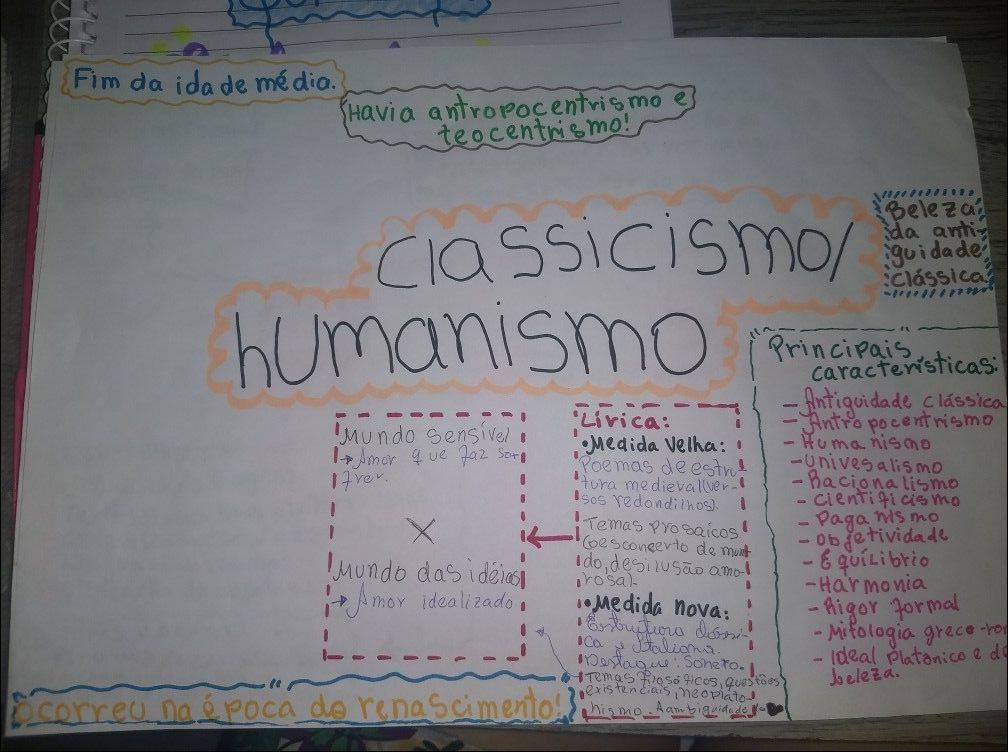 Fim da idade média.
Havia antropocentrismo e
teocentrismo!
Classicismo/
humanismo
Beleza
da anti-
guidade
Clássica
Principais
características:
- Antiguidade clássica
- Antropocentrismo
- Humanismo
- Univesalismo
- Racionalismo
- Cientificismo
- Paganismo
- Objetividade
- Equilíbrio
- Harmonia
- Rigor formal
- Mitologia greco-ro
- Ideal Platônico e de
beleza.
Mundo sensível
→ Amor que faz sof
frer.
X
Mundo das idéias
→ Amor idealizado
Lírica:
•Medida Velha:
Poemas de estru
tura medieval(ver-
sos redondilhos).
Temas prosaicos
(desconcerto de mun
do, desilusão amo-
rosa).
•Medida nova:
Estrutura clássi-
ca, Italiana.
Destaque: Soneto.
Temas filosóficos, questões
existenciais, neoplato
nismo. A ambiguidade do ♥
Ocorreu na época do renascimento!